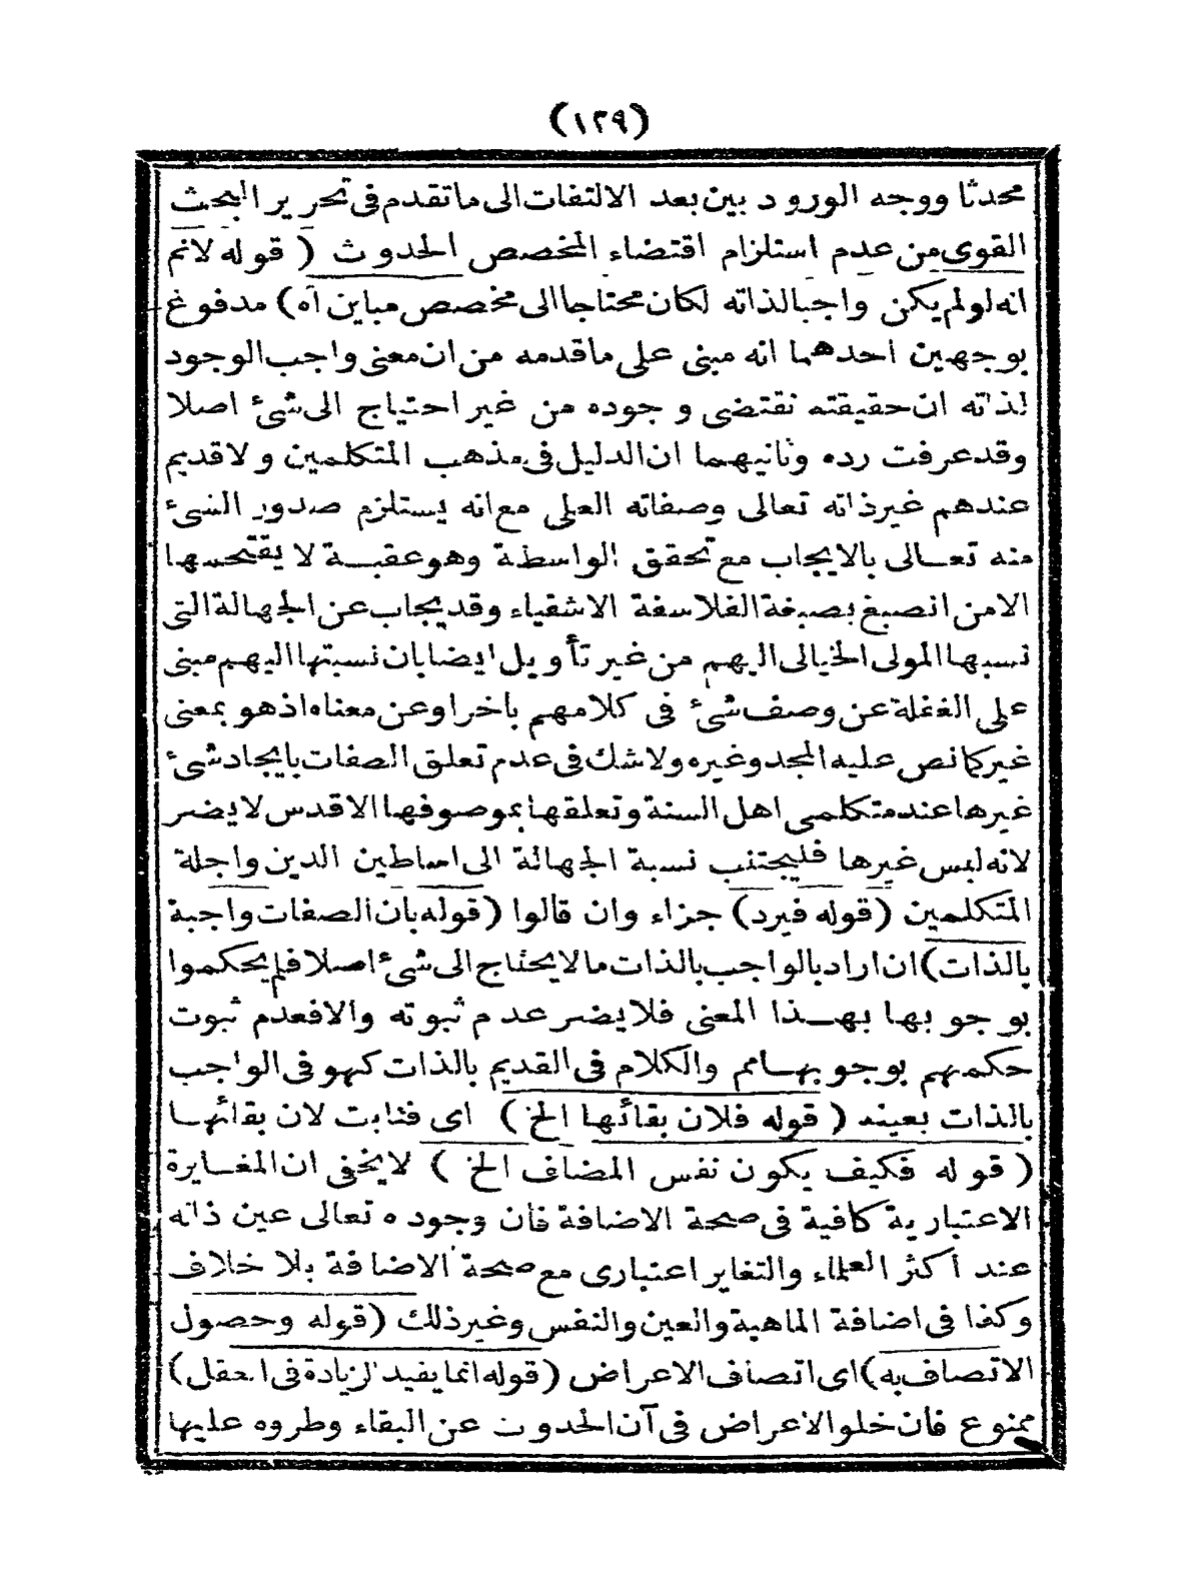 (١٢٩)
محدثا ووجه الورود بين بعد الالتفات الى ما تقدم فى تحرير البحث
القوى من عدم استلزام اقتضاء المخصص الحدوث ( قوله لانم
انه لو لم يكن واجبا لذاته لكان محتاجا الى مخصص مباين آه) مدفوع
بوجهين احدهما انه مبنى على ما قدمه من ان معنى واجب الوجود
لذاته ان حقيقته نقتضى وجوده من غير احتياج الى شئ اصلا
وقد عرفت رده وثانيهما ان الدليل فى مذهب المتكلمين ولا قديم
عندهم غير ذاته تعالى وصفاته العلى مع انه يستلزم صدور الشئ
منه تعالى بالايجاب مع تحقق الواسطة وهو عقبة لا يقتحمها
الا من انصبغ بصبغة الفلاسفة الاشقياء وقد يجاب عن الجهالة التى
نسبها المولى الخيالى اليهم من غير تأويل ايضا بان نسبتها اليهم مبنى
على الغفلة عن وصف شئ فى كلامهم باخر او عن معناه اذ هو بمعنى
غير كما نص عليه المجد وغيره ولا شك فى عدم تعلق الصفات بايجاد شئ
غيرها عند متكلمى اهل السنة وتعلقها بموصوفها الاقدس لا يضر
لانه ليس غيرها فليجتنب نسبة الجهالة الى اساطين الدين واجلة
المتكلمين (قوله فيرد) جزاء وان قالوا (قوله بان الصفات واجبة
بالذات) ان اراد بالواجب بالذات ما لا يحتاج الى شئ اصلا فلم يحكموا
بوجوبها بهذا المعنى فلا يضر عدم ثبوته والا فعدم ثبوت
حكمهم بوجوبها مم والكلام فى القديم بالذات كهو فى الواجب
بالذات بعينه ( قوله فلان بقائها الخ ) اى فثابت لان بقائها
( قوله فكيف يكون نفس المضاف الخ ) لا يخفى ان المغايرة
الاعتبارية كافية فى صحة الاضافة فان وجوده تعالى عين ذاته
عند أكثر العلماء والتغاير اعتبارى مع صحة الاضافة بلا خلاف
وكفا فى اضافة الماهية والعين والنفس وغير ذلك (قوله وحصول
الاتصاف به) اى اتصاف الاعراض (قوله انما يفيد الزيادة فى العقل)
ممنوع فان خلو الاعراض فى آن الحدوث عن البقاء وطروه عليها